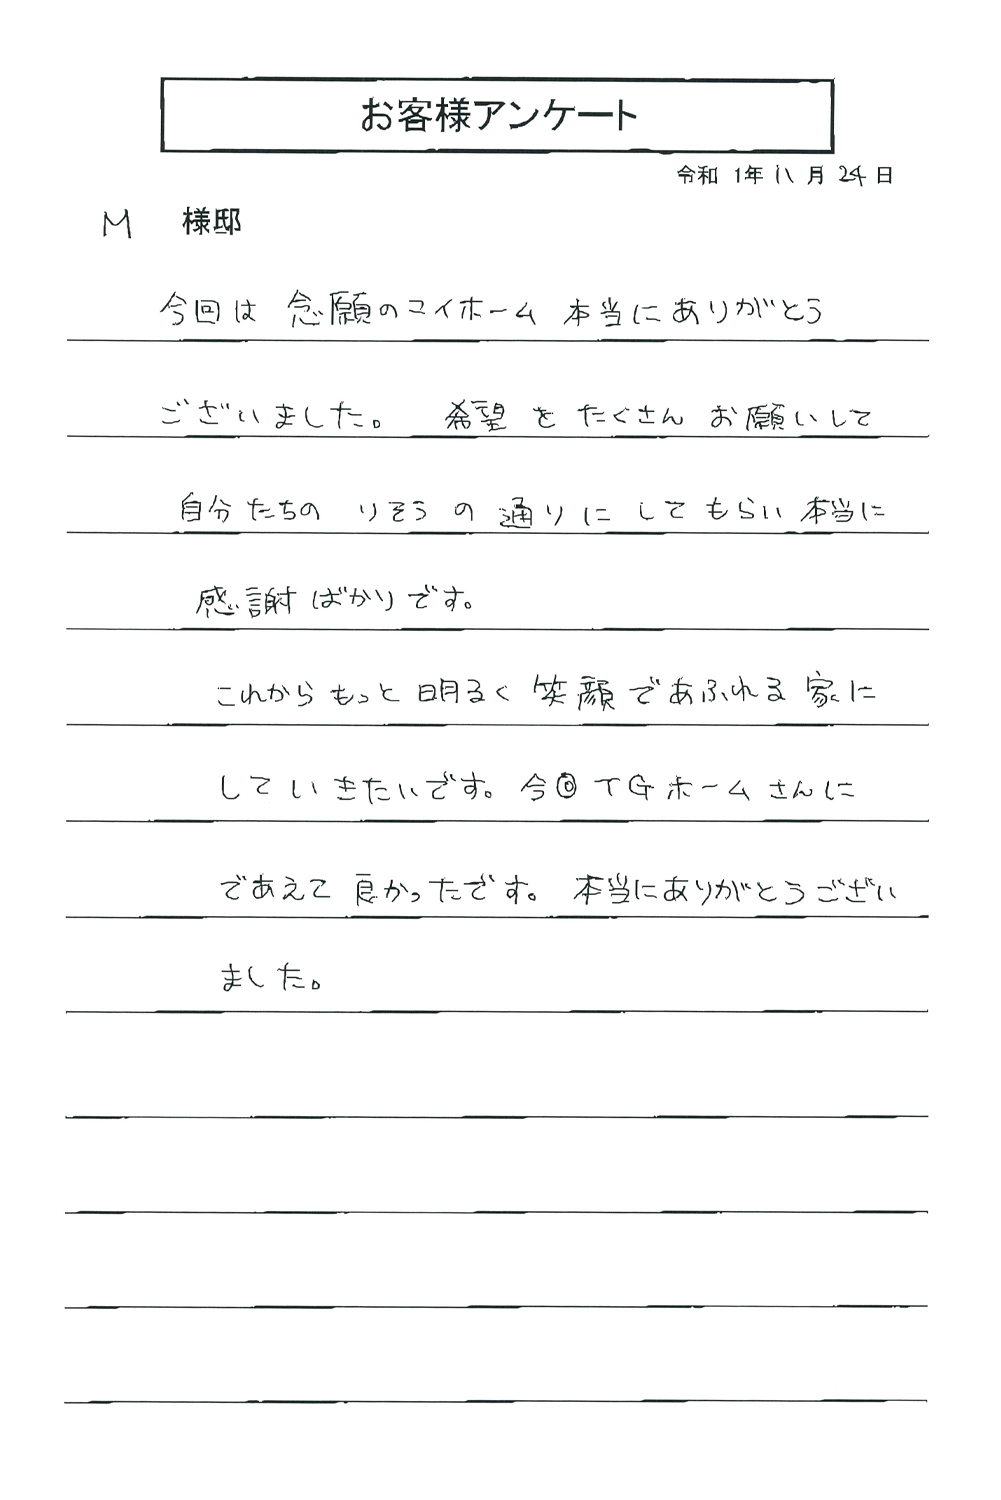 お客様アンケート
令和 1年 11月 24日
M 様邸
今回は 念願のマイホーム 本当にありがとう
ございました。 希望 を たくさん お願いして
自分たちの りそう の 通りに してもらい 本当に
感謝ばかりです。
これからもっと 明るく 笑顔であふれる 家に
していきたいです。今回 TGホームさんに
であえて 良かったです。 本当にありがとうござい
ました。